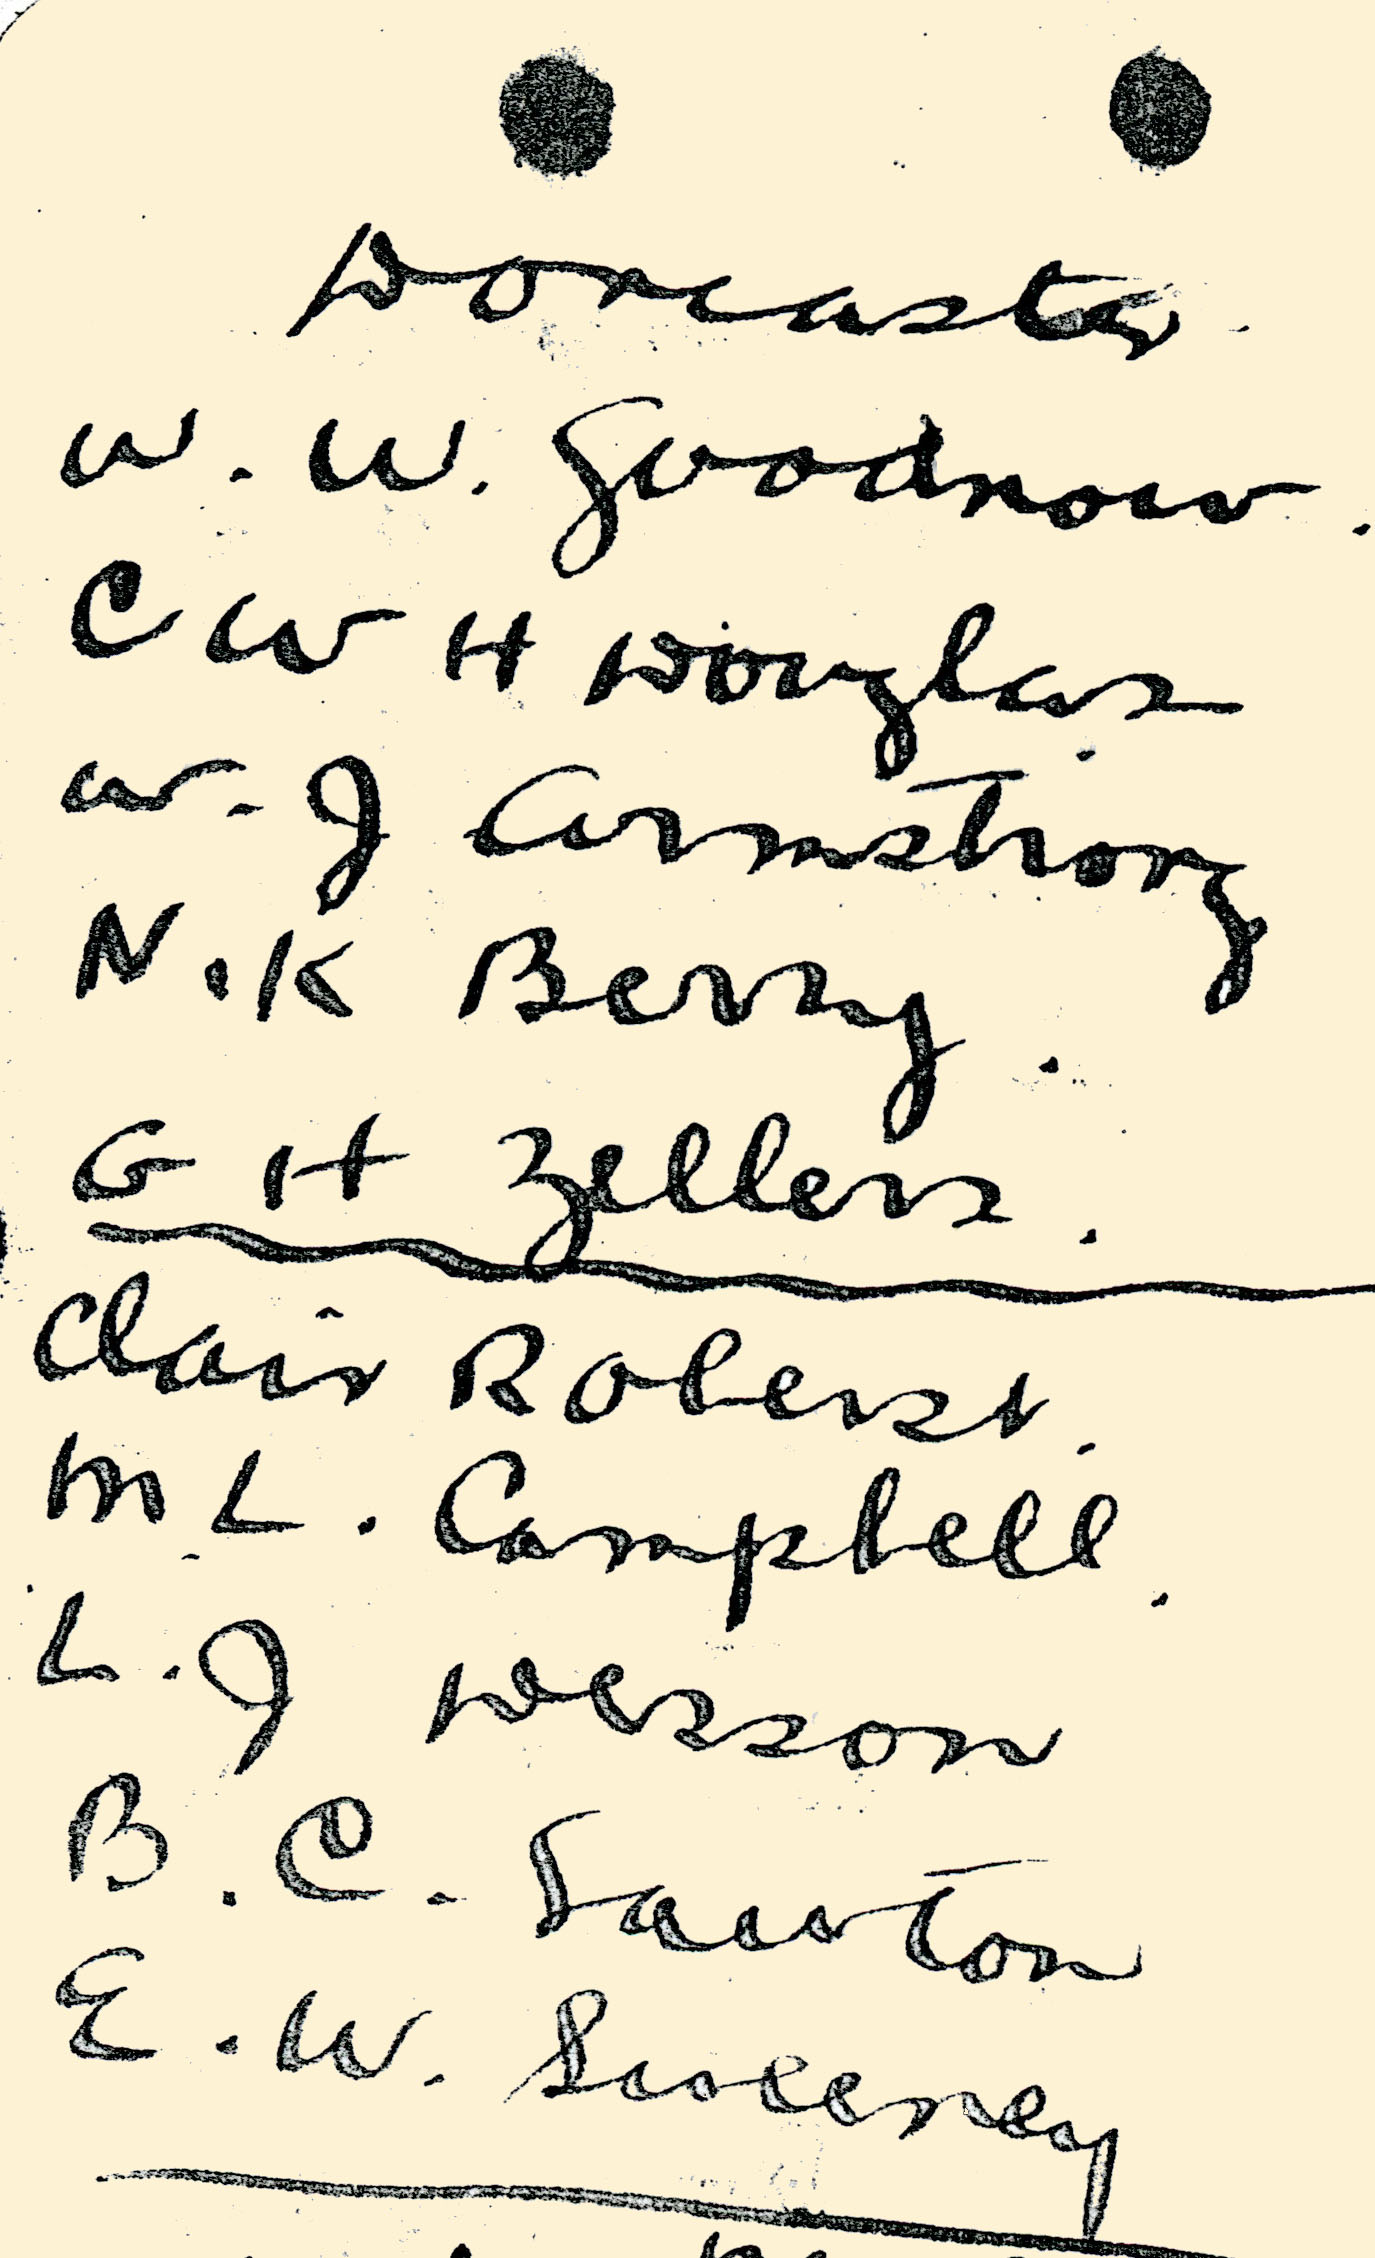 Doncaster.
W. W. Goodnow.
C W H Douglas
W. J Armstrong
N. K Berry.
G H Zellers.
Clair Roberst.
M L. Campbell.
L. J Wesson
B. C. Lawton
E. W. Sweeney